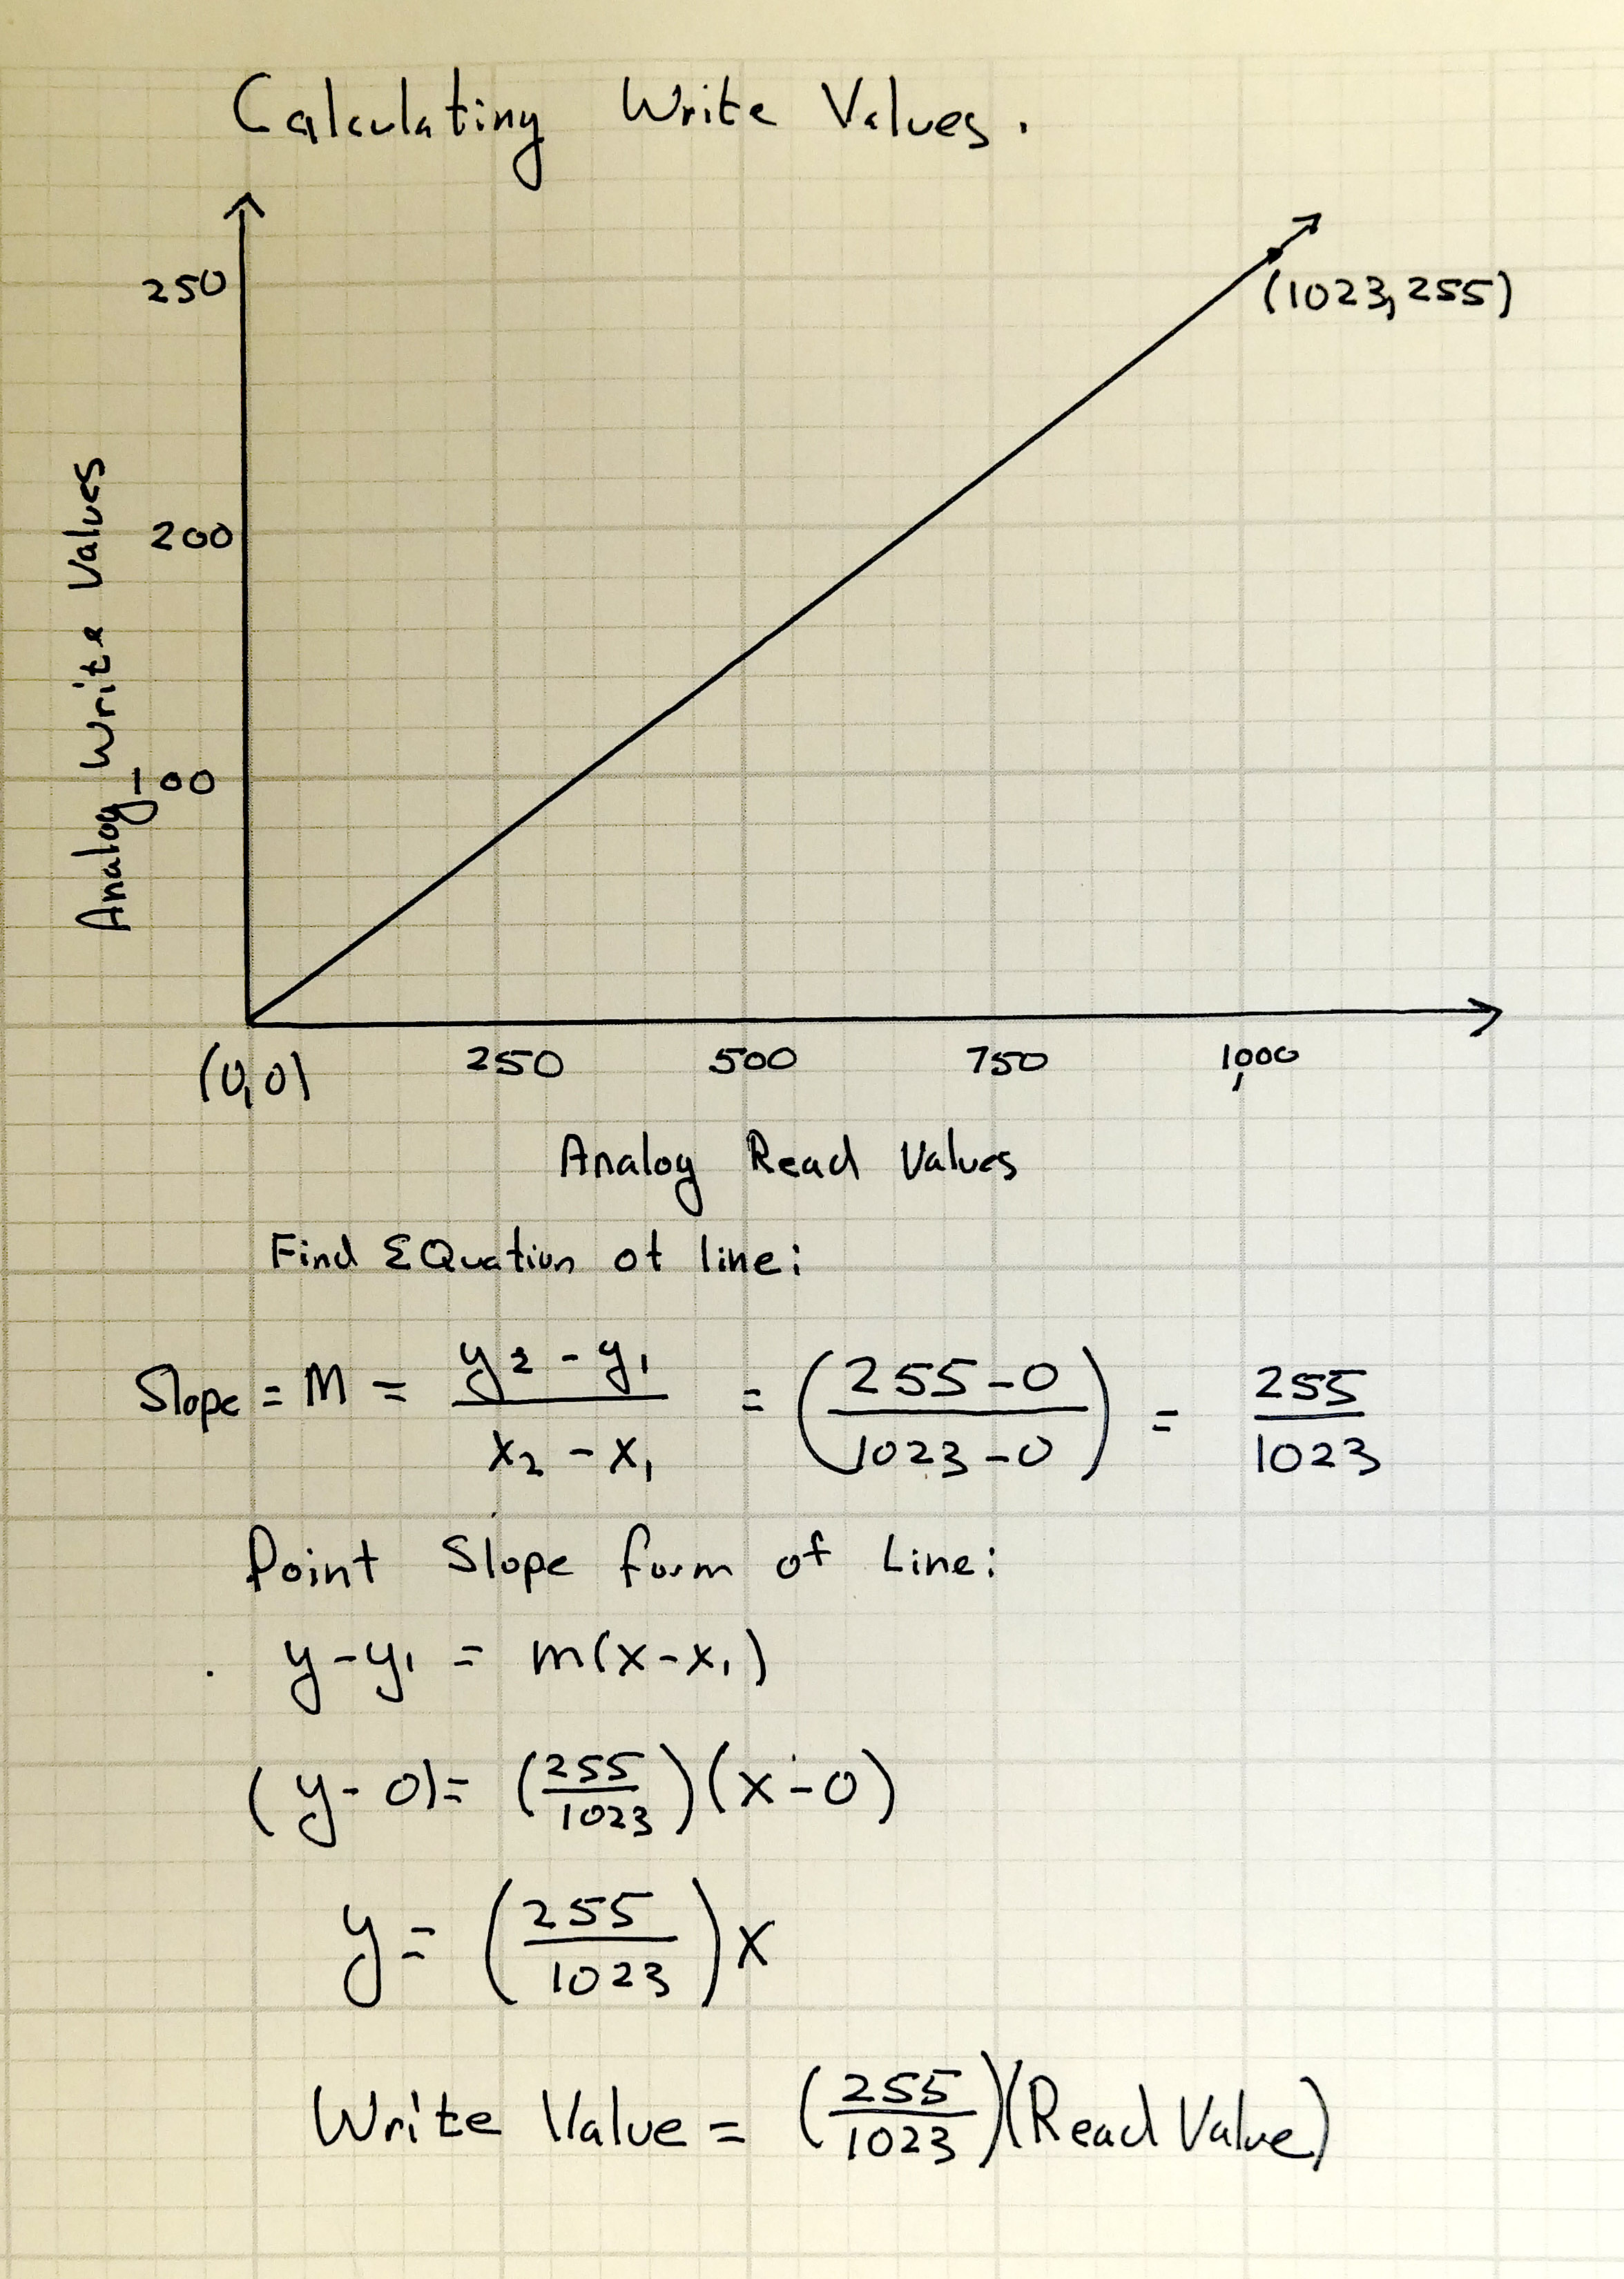 Calculating Write Values.
250
(1023, 255)
200
Analog Write Values
100
(0,0)
250 500 750 1,000
Analog Read Values
Find EQuation of line:
Slope = M = (y₂ - y₁)/(x₂ - x₁) = ((255-0)/(1023-0)) = 255/1023
Point Slope form of Line:
y-y₁ = m(x-x₁)
(y-0)= (255/1023)(x-0)
y= (255/1023)x
Write Value = (255/1023)(Read Value)